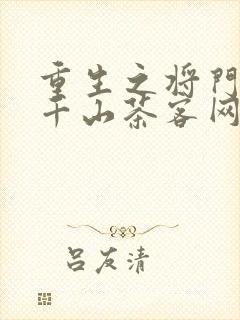 重生之将门
千山茶客网
吕友清